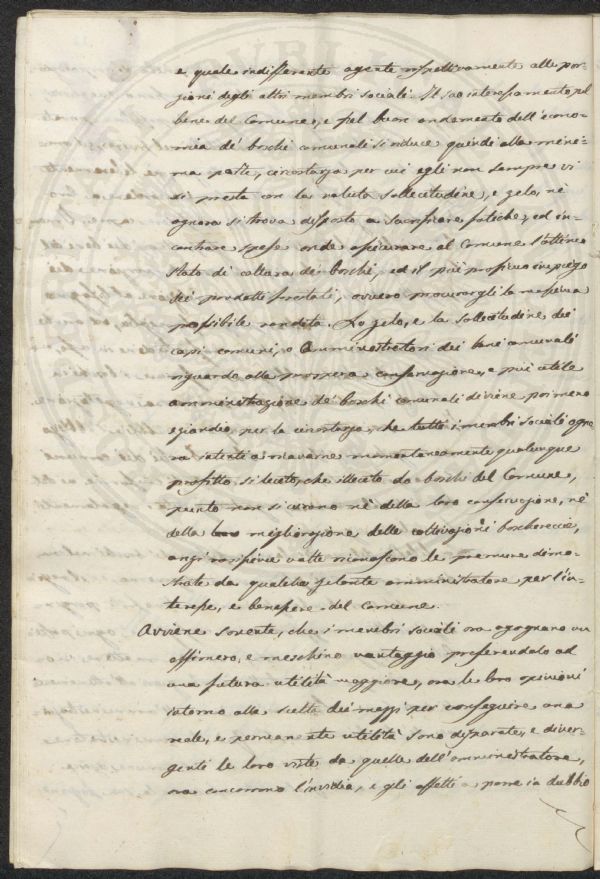 e quale indifferente agente rispettivamente alle por-
zioni degli altri membri sociali. Il suo interessamento pel
bene del Comune, e pel buon andamento dell'econo-
mia de' boschi comunali si riduce quindi alla mini-
ma parte, circostanza per cui egli non sempre vi
si presta con la voluta sollecitudine, e zelo, nè
ognora si trova disposto a sacrificare fatiche, ed in-
contrare spese onde assicurare al Comune l'ottimo
stato di coltura dei boschi, ed il più proficuo impiego
dei prodotti forestali, ovvero procurargli la massima
possibile rendita. Lo zelo, e la sollecitudine dei
capi comuni, o Amministratori dei beni comunali
riguardo alla prospera conservazione, e più utile
amministrazione de' boschi comunali diviene poi meno
eziandio per la circostanza, che tutti i membri sociali ogno-
ra intenti a ricavarne momentaneamente qualunque
profitto sì lecito, che illecito da boschi del Comune,
punto non si curano nè della loro conservazione, nè
della migliorazione delle coltivazioni boschereccie,
anzi rarissime volte riconoscono le premure dimo-
strate da qualche zelante amministratore per l'in-
teresse, e benessere del Comune.
Avviene sovente, che i membri sociali ora agognano un
effimero, e meschino vantaggio preferendolo ad
una futura utilità maggiore, ora le loro opinioni
intorno alla scelta dei mezzi per conseguire una
reale, e permanente utilità sono disparate, e diver-
genti le loro viste da quelle dell'amministratore,
ora concorrono l'invidia, e gli affetti a porre in dubbio